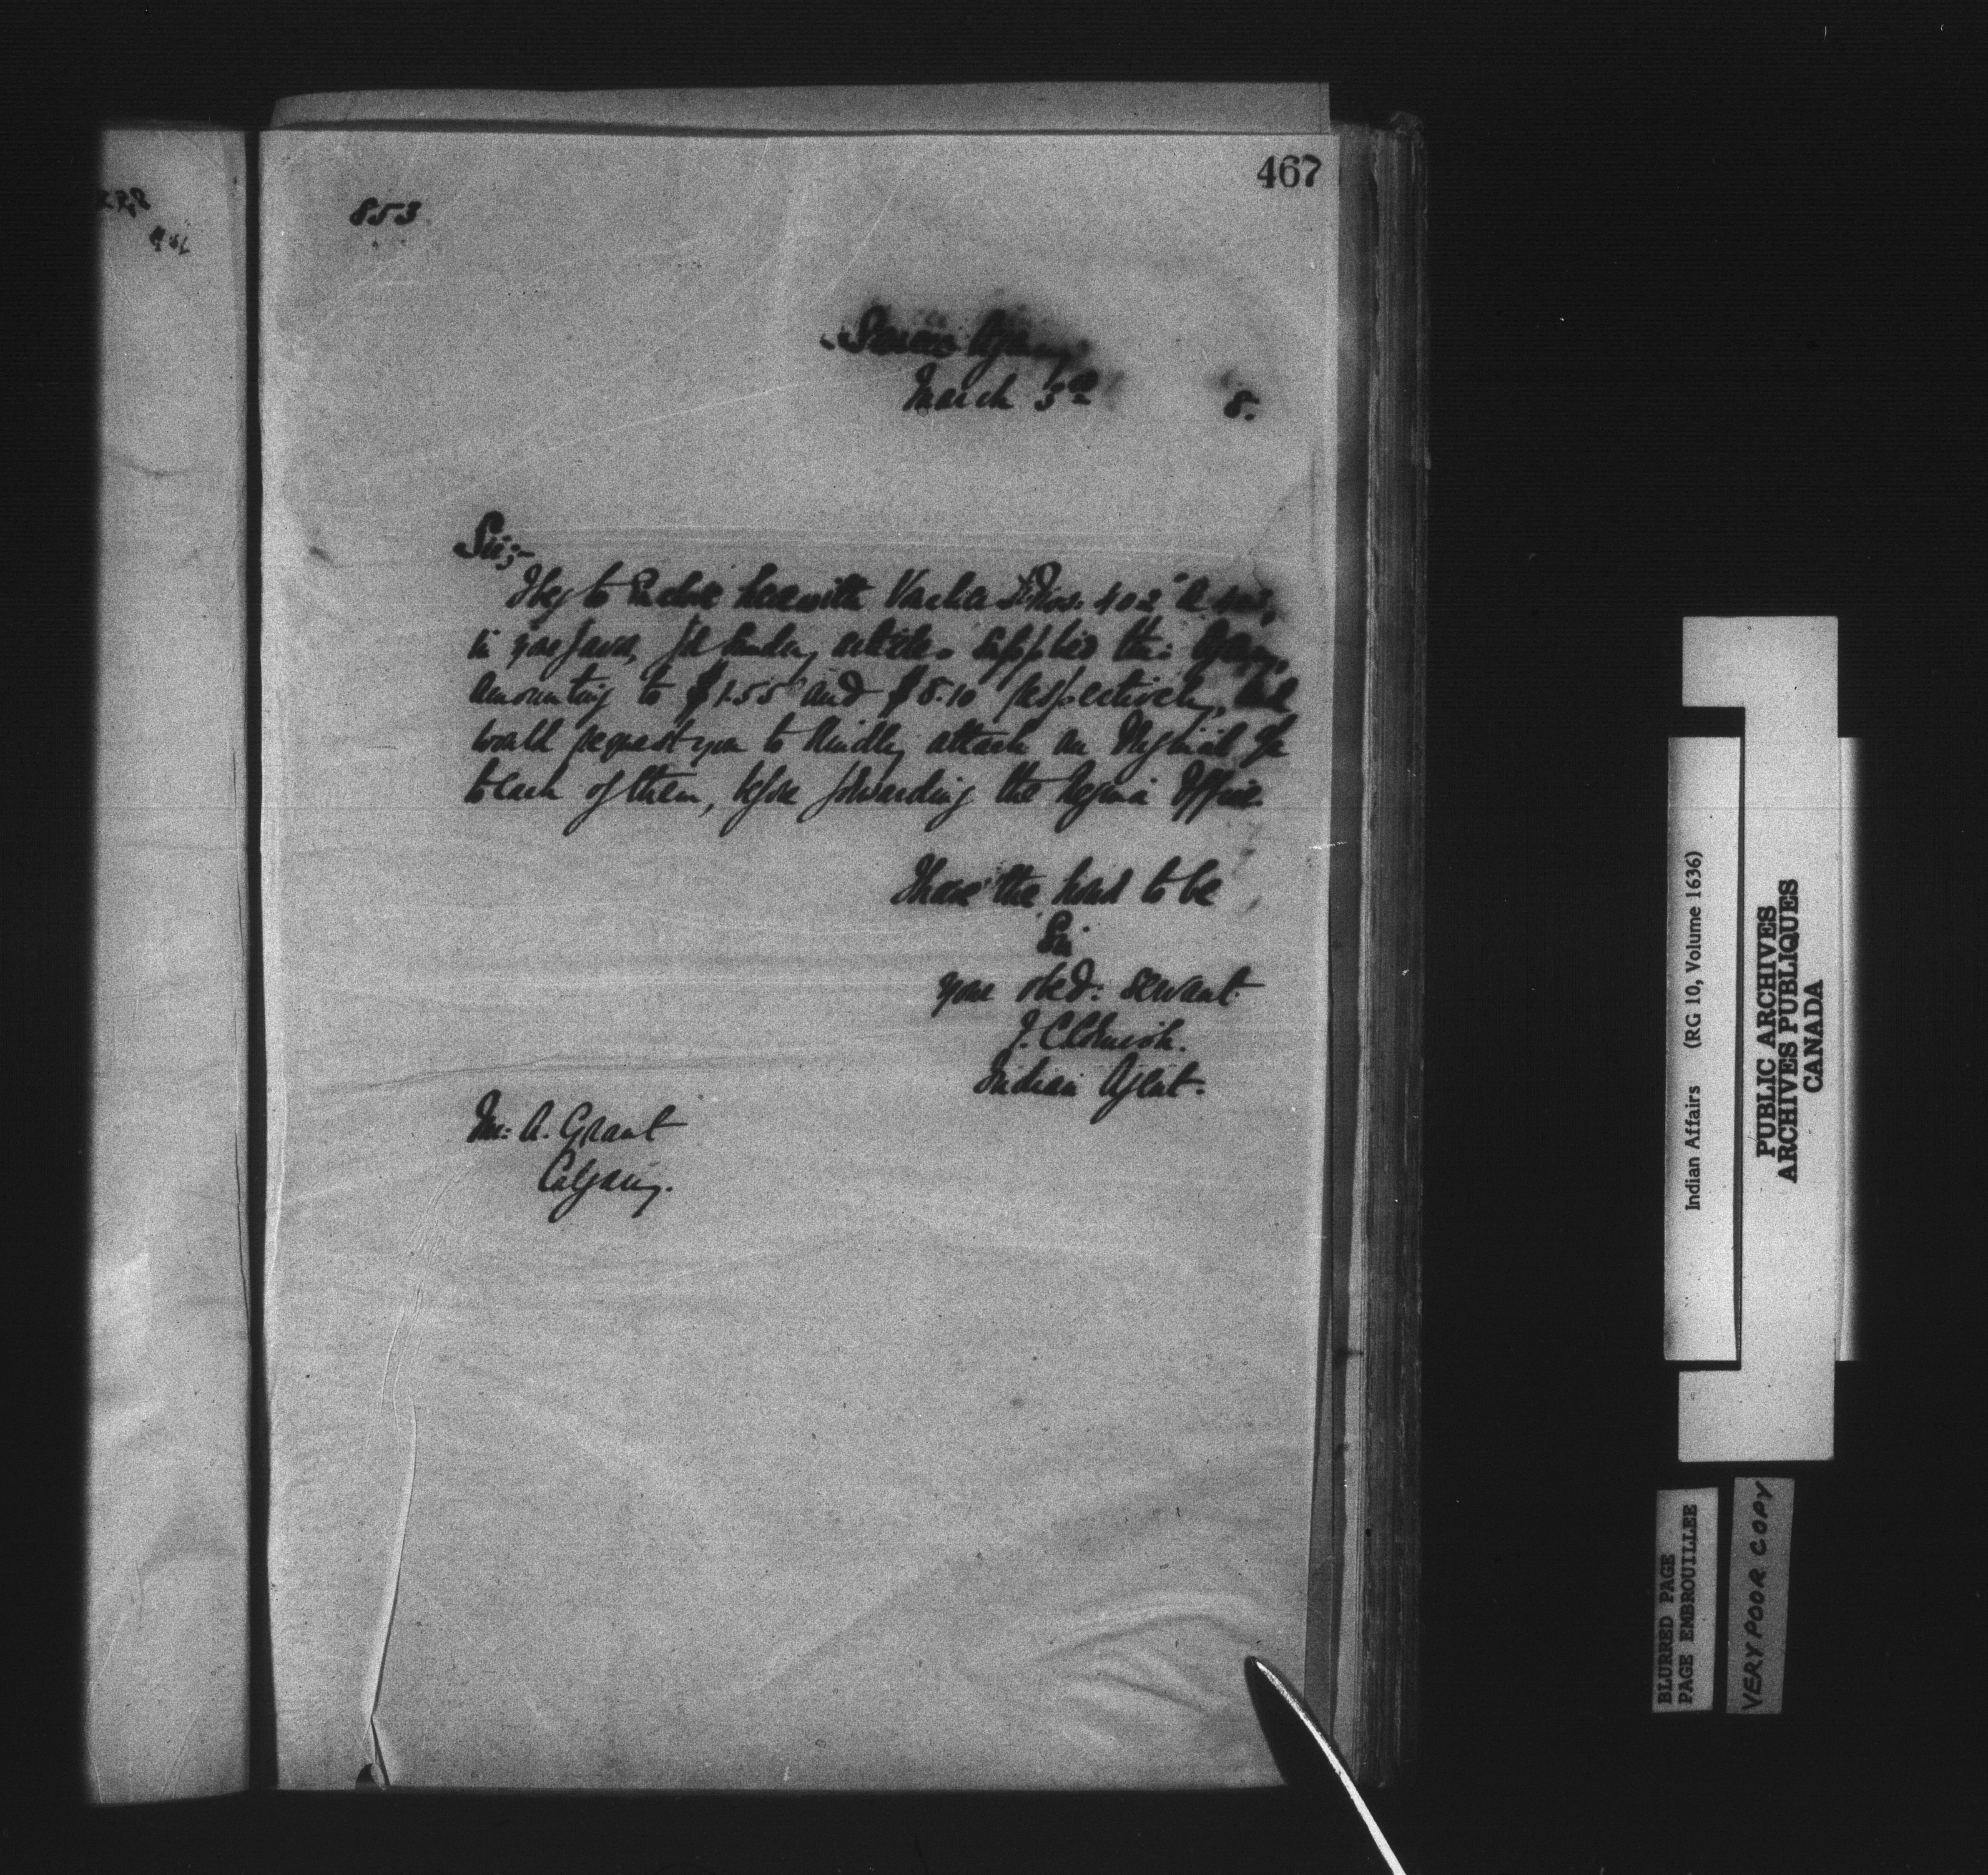 467
853
Sarcee Agency
March 3rd 8.
Sir;-
I beg to Enclose herewith Vouchers Nos. 402 & 403,
in your favor, for Sundry articles supplied this Agency,
amounting to $1.55 and $8.10 respectively, and
would request you to kindly attach an Original
to each of them, before forwarding the Regina Office.
I have the honor to be
Sir
your obed: servant.
Indian Agent.
Mr. A. Grant
Calgary.
Indian Affairs (RG 10, Volume 1636)
PUBLIC ARCHIVES
ARCHIVES PUBLIQUES
CANADA
BLURRED PAGE
PAGE EMBROUILLEE
VERY POOR COPY